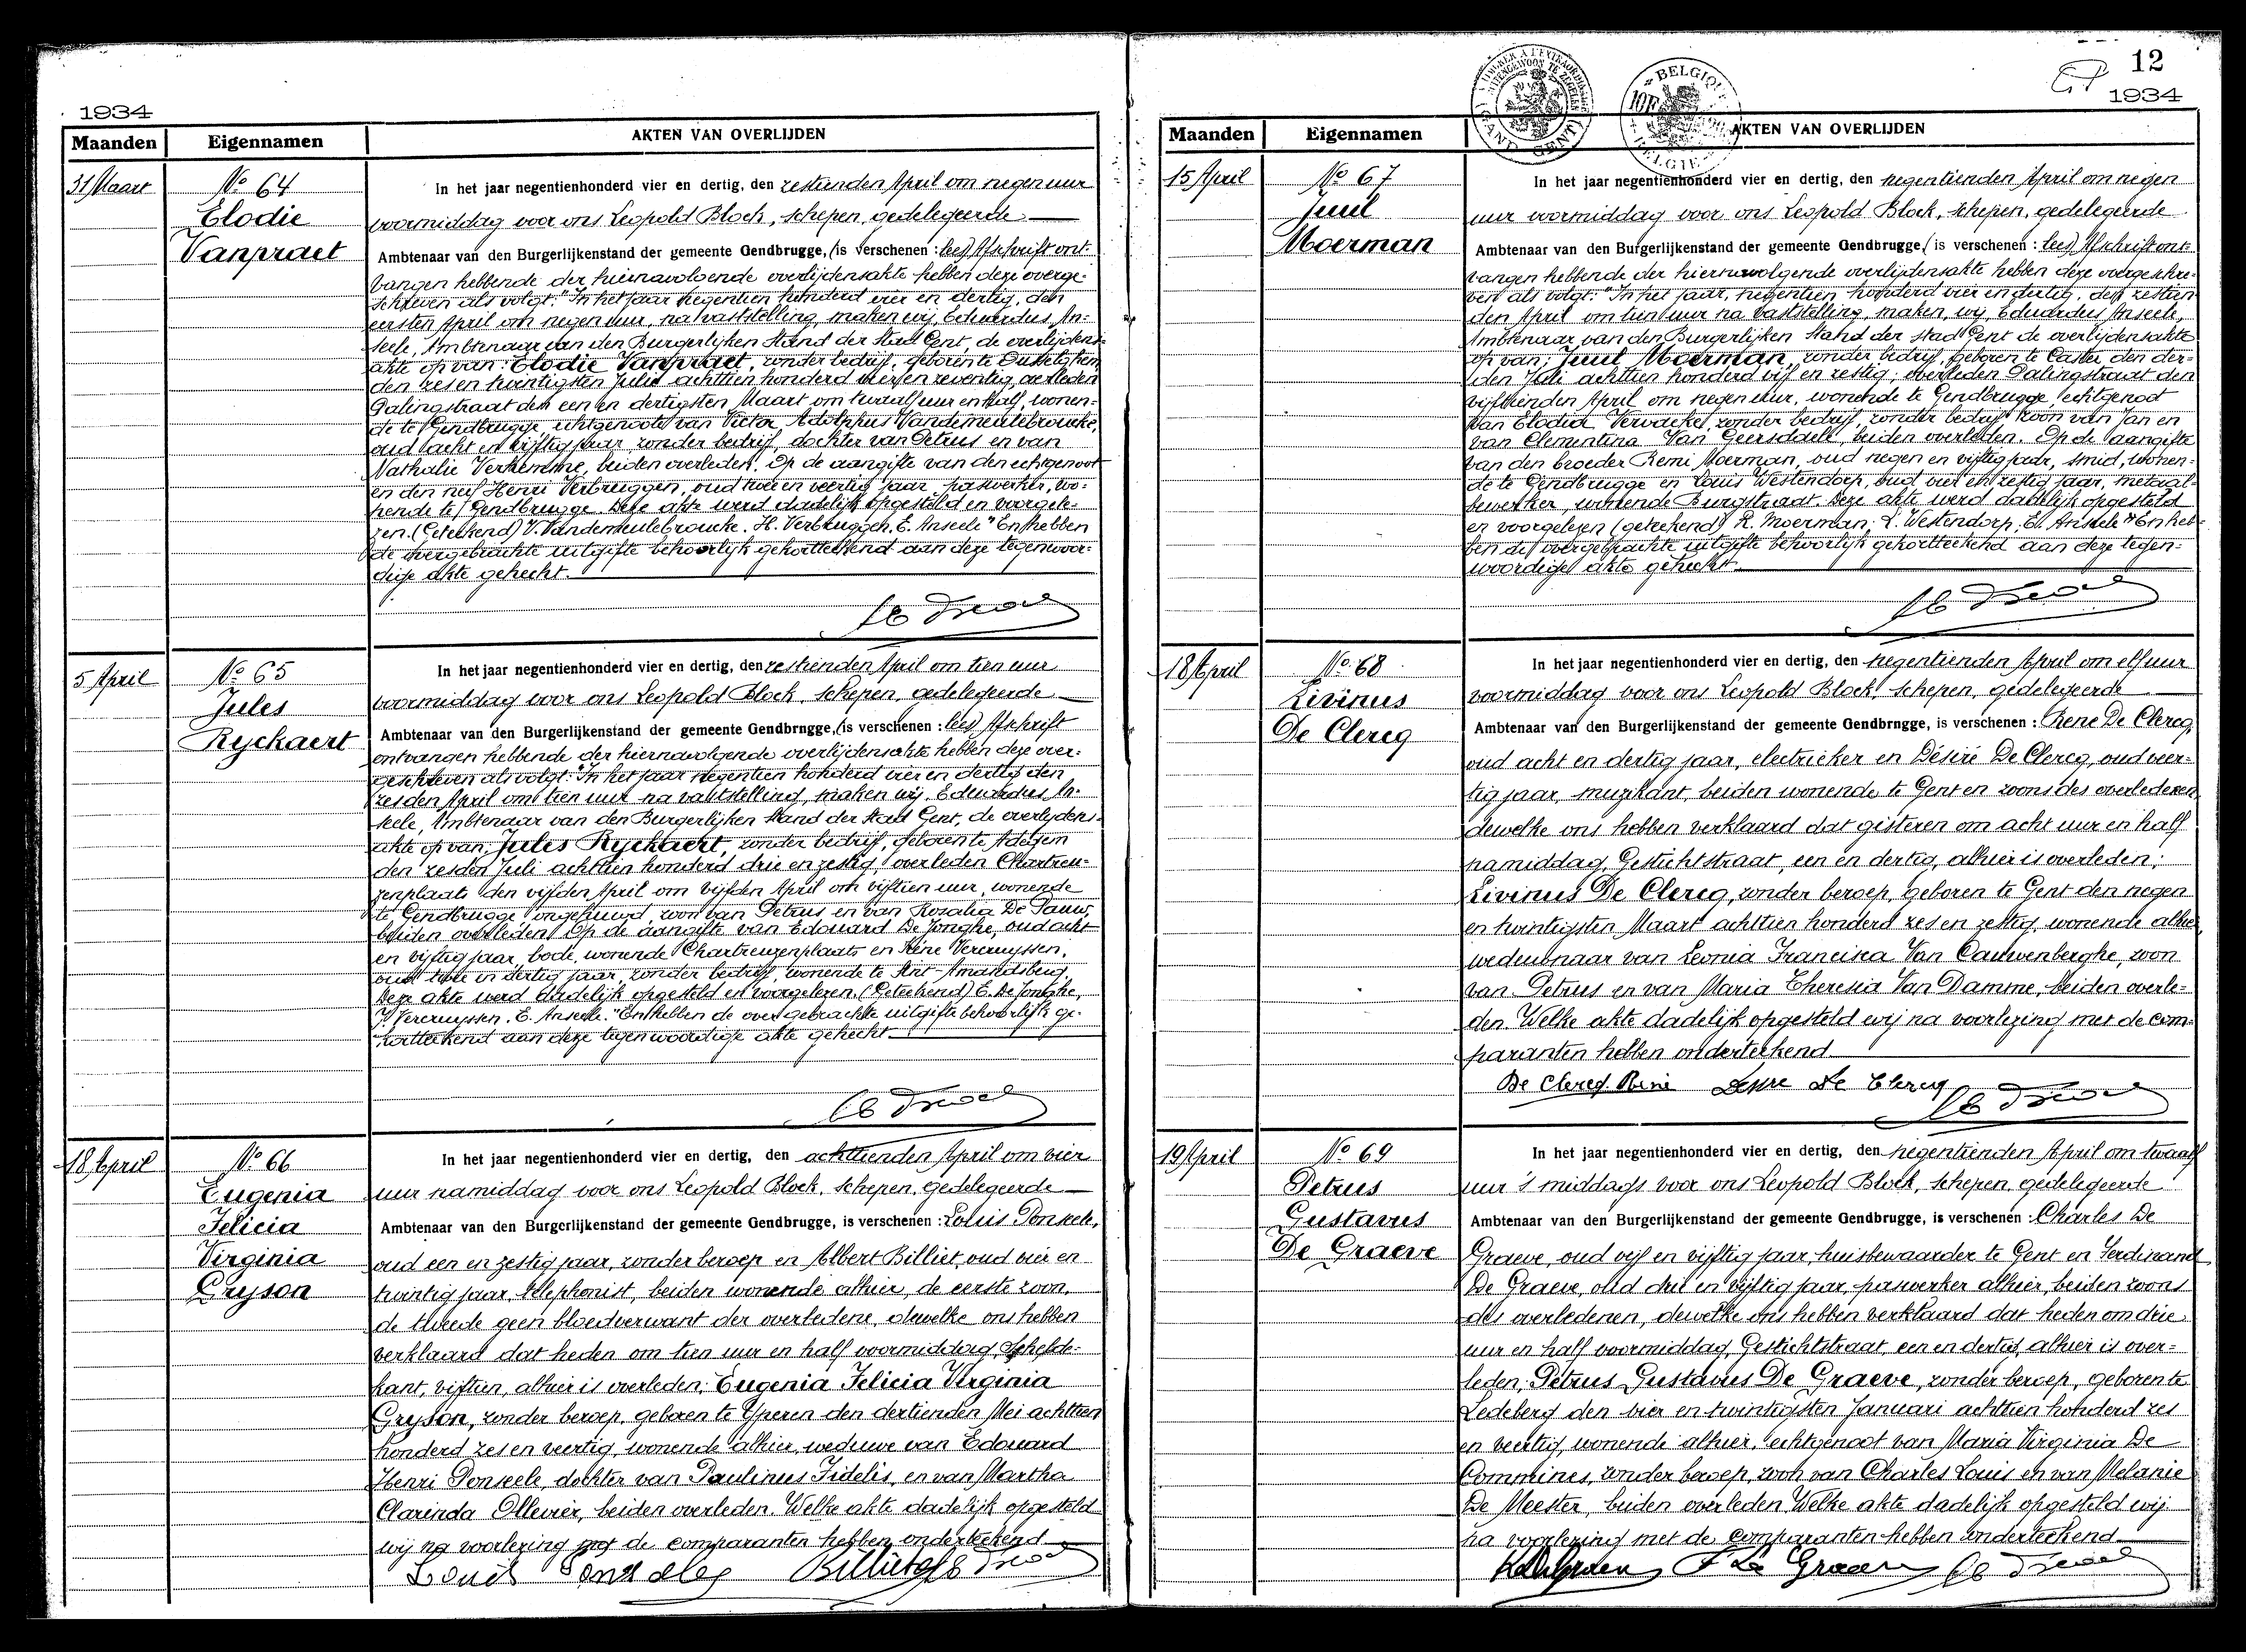 1934
Maanden
Eigennamen
AKTEN VAN OVERLIJDEN
31 Maart
No 64
Elodie
Vanpraet
In het jaar negentienhonderd vier en dertig, den zestienden April om negen uur
voormiddag voor ons Leopold Block, schepen, gedelegeerde
Ambtenaar van den Burgerlijkenstand der gemeente Gendbrugge, (is verschenen : lees) Afschrift ont-
vangen hebbende der hiernavolgende overlijdensakte hebben deze overge-
schreven als volgt: "In het jaar negentien honderd vier en dertig, den
eersten April om negen uur, na vaststelling, maken wij, Eduardus An-
seele, Ambtenaar van den Burgerlijken Stand der stad Gent, de overlijdens-
akte op van: Elodie Vanpraet, zonder bedrijf, geboren te Ousselghem
den zes en twintigsten Julij achttien honderd vijf en zeventig, overleden
Palingstraat den een en dertigsten Maart om twaalf uur en half, wonen-
de te Gendbrugge, echtgenoote van Victor Adolphus Vandemeulebroucke,
oud acht en vijftig jaar, zonder bedrijf, dochter van Petrus en van
Nathalie Verkemme, beiden overleden. Op de aangifte van den echtgenoot
en den neef Henri Verbruggen, oud twee en veertig jaar, paswerker, wo-
nende te Gendbrugge. Deze akte werd dadelijk opgesteld en voorgele-
zen. (Geteekend) V. Vandemeulebroucke. H. Verbruggen, E. Anseele" En hebben
de overgebrachte uitgifte behoorlijk gekortteekend aan deze tegenwoor-
dige akte gehecht.
5 April
No 65
Jules
Ryckaert
In het jaar negentienhonderd vier en dertig, den zestienden April om tien uur
voormiddag voor ons Leopold Block, schepen, gedelegeerde
Ambtenaar van den Burgerlijkenstand der gemeente Gendbrngge, (is verschenen : lees) Afschrift
ontvangen hebbende der hiernavolgende overlijdensakte hebben deze over-
geschreven als volgt: "In het jaar negentien honderd vier en dertig den
zesden April om tien uur na vaststelling, maken wij, Eduardus An-
seele, Ambtenaar van den Burgerlijken Stand der stad Gent, de overlijdens-
akte op van: Jules Ryckaert, zonder bedrijf, geboren te Adegem
den zesden Juli achttien honderd drie en zestig, overleden Chartreu-
zenplaats den vijfden April om vijfden April om vijftien uur, wonende
te Gendbrugge, ongehuwd, zoon van Petrus en van Rosalia De Pauw,
beiden overleden. Op de aangifte van Edouard De Jonghe, oud acht
en vijftig jaar, bode, wonende Chartreuzenplaats en Irène Vercruyssen,
oud twee en dertig jaar, zonder bedrijf, wonende te Sint-Amandsberg.
Deze akte werd dadelijk opgesteld en voorgelezen. (Geteekend) E. De Jonghe,
I. Vercruyssen. E. Anseele." En hebben de overgebrachte uitgifte behoorlijk ge-
kortteekend aan deze tegenwoordige akte gehecht
18 April
No 66
Eugenia
Felicia
Virginia
Gryson
In het jaar negentienhonderd vier en dertig, den achttienden April om vier
uur namiddag voor ons Leopold Block, schepen, gedelegeerde
Ambtenaar van den Burgerlijkenstand der gemeente Gendbrugge, is verschenen : Louis Donseele,
oud een en zestig jaar, zonder beroep en Albert Billiet, oud vier en
twintig jaar, telephonist, beiden wonende alhier, de eerste zoon,
de tweede geen bloedverwant der overledene, dewelke ons hebben
verklaard dat heden om tien uur en half voormiddag, Schelde-
kant, vijftien, alhier is overleden: Eugenia Felicia Virginia
Gryson, zonder beroep, geboren te Yperen den dertienden Mei achttien
honderd zes en veertig, wonende alhier, weduwe van Edouard
Henri Donseele, dochter van Paulinus Fidelis, en van Martha
Clarinda Ollevier, beiden overleden. Welke akte dadelijk opgesteld
wij na voorlezing met de comparanten hebben onderteekend
12
1934
Maanden
Eigennamen
AKTEN VAN OVERLIJDEN
15 April
No 67
Juul
Moerman
In het jaar negentienhonderd vier en dertig, den negentienden April om negen
uur voormiddag voor ons Leopold Block, schepen, gedelegeerde
Ambtenaar van den Burgerlijkenstand der gemeente Gendbrugge, (is verschenen : lees) Afschrift ont-
vangen hebbende der hiernavolgende overlijdensakte hebben deze overgeschre-
ven als volgt: "In het jaar, negentien honderd vier en dertig, den zestien-
den April om tien uur na vaststelling, maken, wij, Eduardus Anseele,
Ambtenaar van den Burgerlijken Stand der stad Gent de overlijdensakte
op van: Juul Moerman, zonder bedrijf, geboren te Caster den der-
den Juli achttien honderd vijf en zestig; overleden Palingstraat den
vijftienden April om negen uur, wonende te Gendbrugge echtgenoot
van Elodia Vervaeke, zonder bedrijf, zonder bedrijf zoon van Jan en
van Clementina Van Geersdaele, beiden overleden. Op de aangifte
van den broeder Remi Moerman, oud negen en vijftig jaar, smid, wonen-
de te Gendbrugge en Louis Westendorp, oud vier en zestig jaar, metaal-
bewerker, wonende Burgstraat. Deze akte werd dadelijk opgesteld
en voorgelezen (geteekend) R. Moerman; L. Westendorp; E. Anseele" En heb-
ben de overgebrachte uitgifte behoorlijk gekortteekend aan deze tegen-
woordige akte gehecht
18 April
No 68
Livinus
De Clercq
In het jaar negentienhonderd vier en dertig, den negentienden April om elf uur
voormiddag voor ons Leopold Block, schepen, gedelegeerde
Ambtenaar van den Burgerlijkenstand der gemeente Gendbrngge, is verschenen : René De Clercq,
oud acht en dertig jaar, electrieker en Désiré De Clercq, oud veer-
tig jaar, muzikant, beiden wonende te Gent en zoons des overledenen
dewelke ons hebben verklaard dat gisteren om acht uur en half
namiddag, Gestichtstraat, een en dertig, alhier is overleden:
Livinus De Clercq, zonder beroep, geboren te Gent den negen
en twintigsten Maart achttien honderd zes en zestig, wonende alhier,
weduwnaar van Leonia Francisca Van Cauwenberghe, zoon
van Petrus en van Maria Theresia Van Damme, beiden overle-
den. Welke akte dadelijk opgesteld wij na voorlezing met de com-
paranten hebben onderteekend
De Clercq René Desire De Clercq
19 April
No 69
Petrus
Gustavus
De Graeve
In het jaar negentienhonderd vier en dertig, den negentienden April om twaalf
uur 's middags voor ons Leopold Block, schepen, gedelegeerde
Ambtenaar van den Burgerlijkenstand der gemeente Gendbrugge, is verschenen : Charles De
Graeve, oud vijf en vijftig jaar, huisbewaarder te Gent en Ferdinand
De Graeve, oud drie en vijftig jaar, paswerker alhier, beiden zoons
des overledenen, dewelke ons hebben verklaard dat heden om drie
uur en half voormiddag, Gestichtstraat, een en dertig, alhier is over-
leden: Petrus Gustavus De Graeve, zonder beroep, geboren te
Ledeberg den vier en twintigsten Januari achttien honderd zes
en veertig, wonende alhier, echtgenoot van Maria Virginia De
Commines, zonder beroep, zoon van Charles Louis en van Melanie
De Meester, beiden overleden. Welke akte dadelijk opgesteld wij
na voorlezing met de comparanten hebben onderteekend